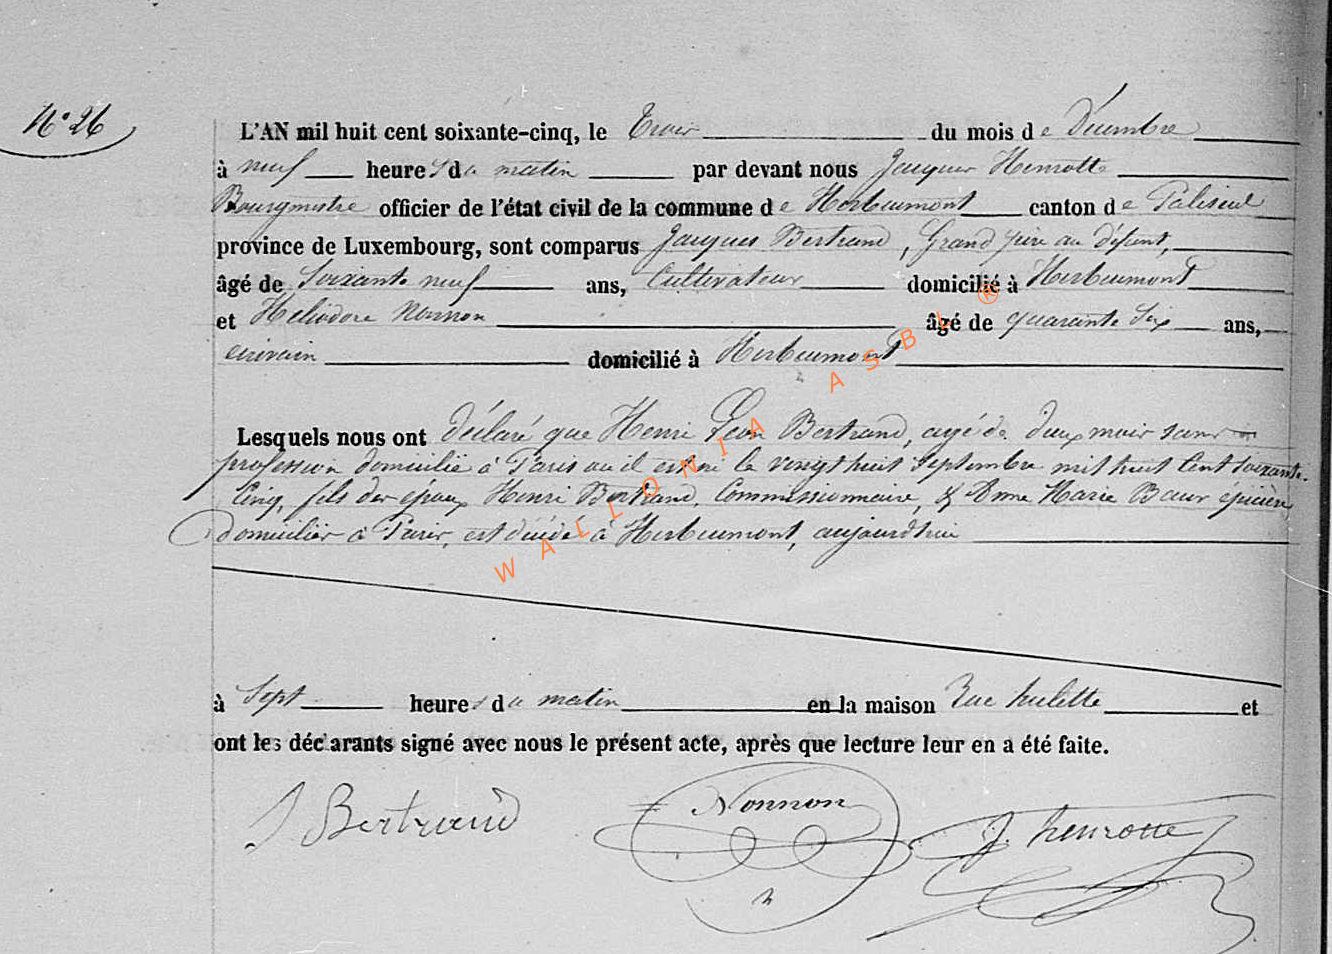 N° 26
L'AN mil huit cent soixante-cinq, le Trois du mois de Décembre
à neuf heures du matin par devant nous Jacques Henrotte
Bourgmestre officier de l'état civil de la commune de Herbeumont canton de Paliseul
province de Luxembourg, sont comparus Jacques Bertrand, Grand père au défunt,
âgé de Soixante neuf ans, Cultivateur domicilié à Herbeumont
et Héliodore Nonnon âgé de quarante Six ans,
écrivain domicilié à Herbeumont
Lesquels nous ont déclaré que Henri Léon Bertrand, agé de deux mois sans
profession domicilié à Paris où il est né le vingt huit Septembre mil huit Cent soixante
Cinq, fils des époux Henri Bertrand, Commissionnaire, & Anne Marie Baur épicière,
domiciliés à Paris, est décédé à Herbeumont, aujourd'hui
à Sept heures du matin en la maison Rue hulette et
ont les déclarants signé avec nous le présent acte, après que lecture leur en a été faite.
J Bertrand Nonnon J. henrotte
WALLONIA ASBL ®